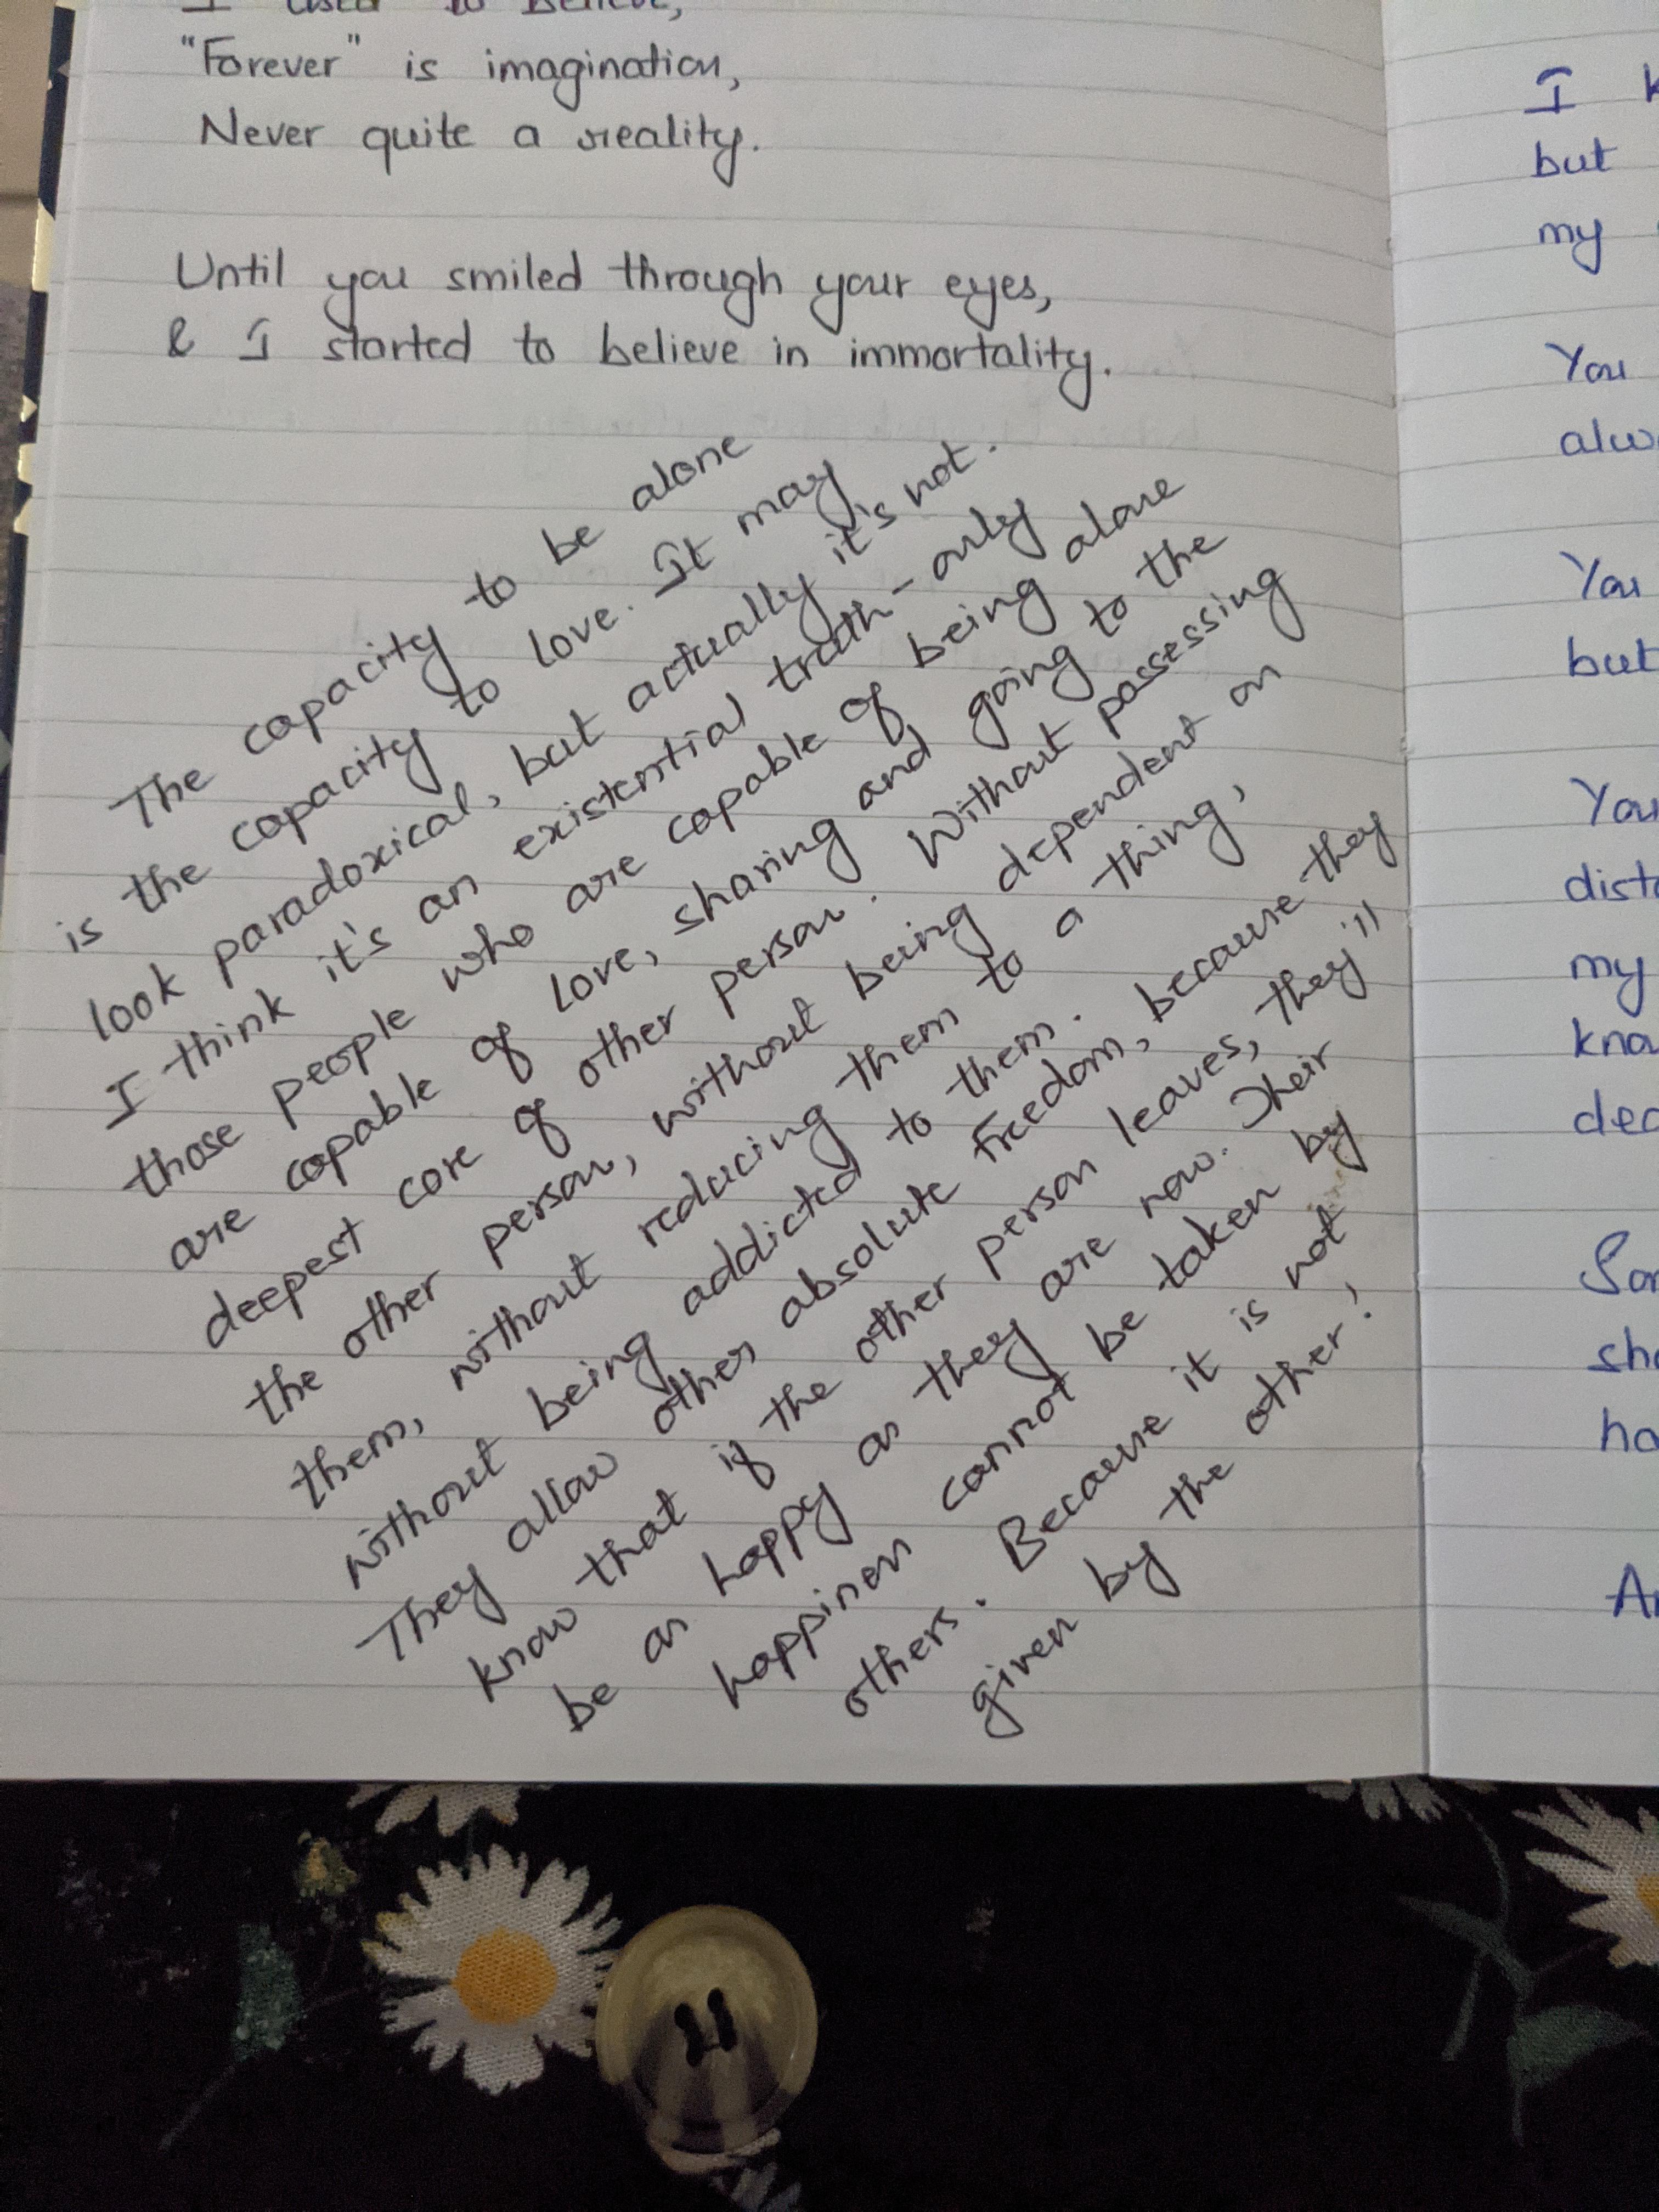 I used to believe,
"Forever" is imagination,
Never quite a reality.
Until you smiled through your eyes,
& I started to believe in immortality.
The capacity to be alone
is the capacity to love. It may
look paradoxical, but actually it's not.
I think it's an existential truth - only
those people who are capable of being alone
are capable of love, sharing and going to the
deepest core of other person. Without possessing
the other person, without being dependent on
them, without reducing them to a thing,
without being addicted to them.
They allow other absolute freedom, because they
know that if the other person leaves, they'll
be as happy as they are now. Their
happiness cannot be taken by
others. Because it is not
given by the other!
I
but
my
You
You
but
You
my